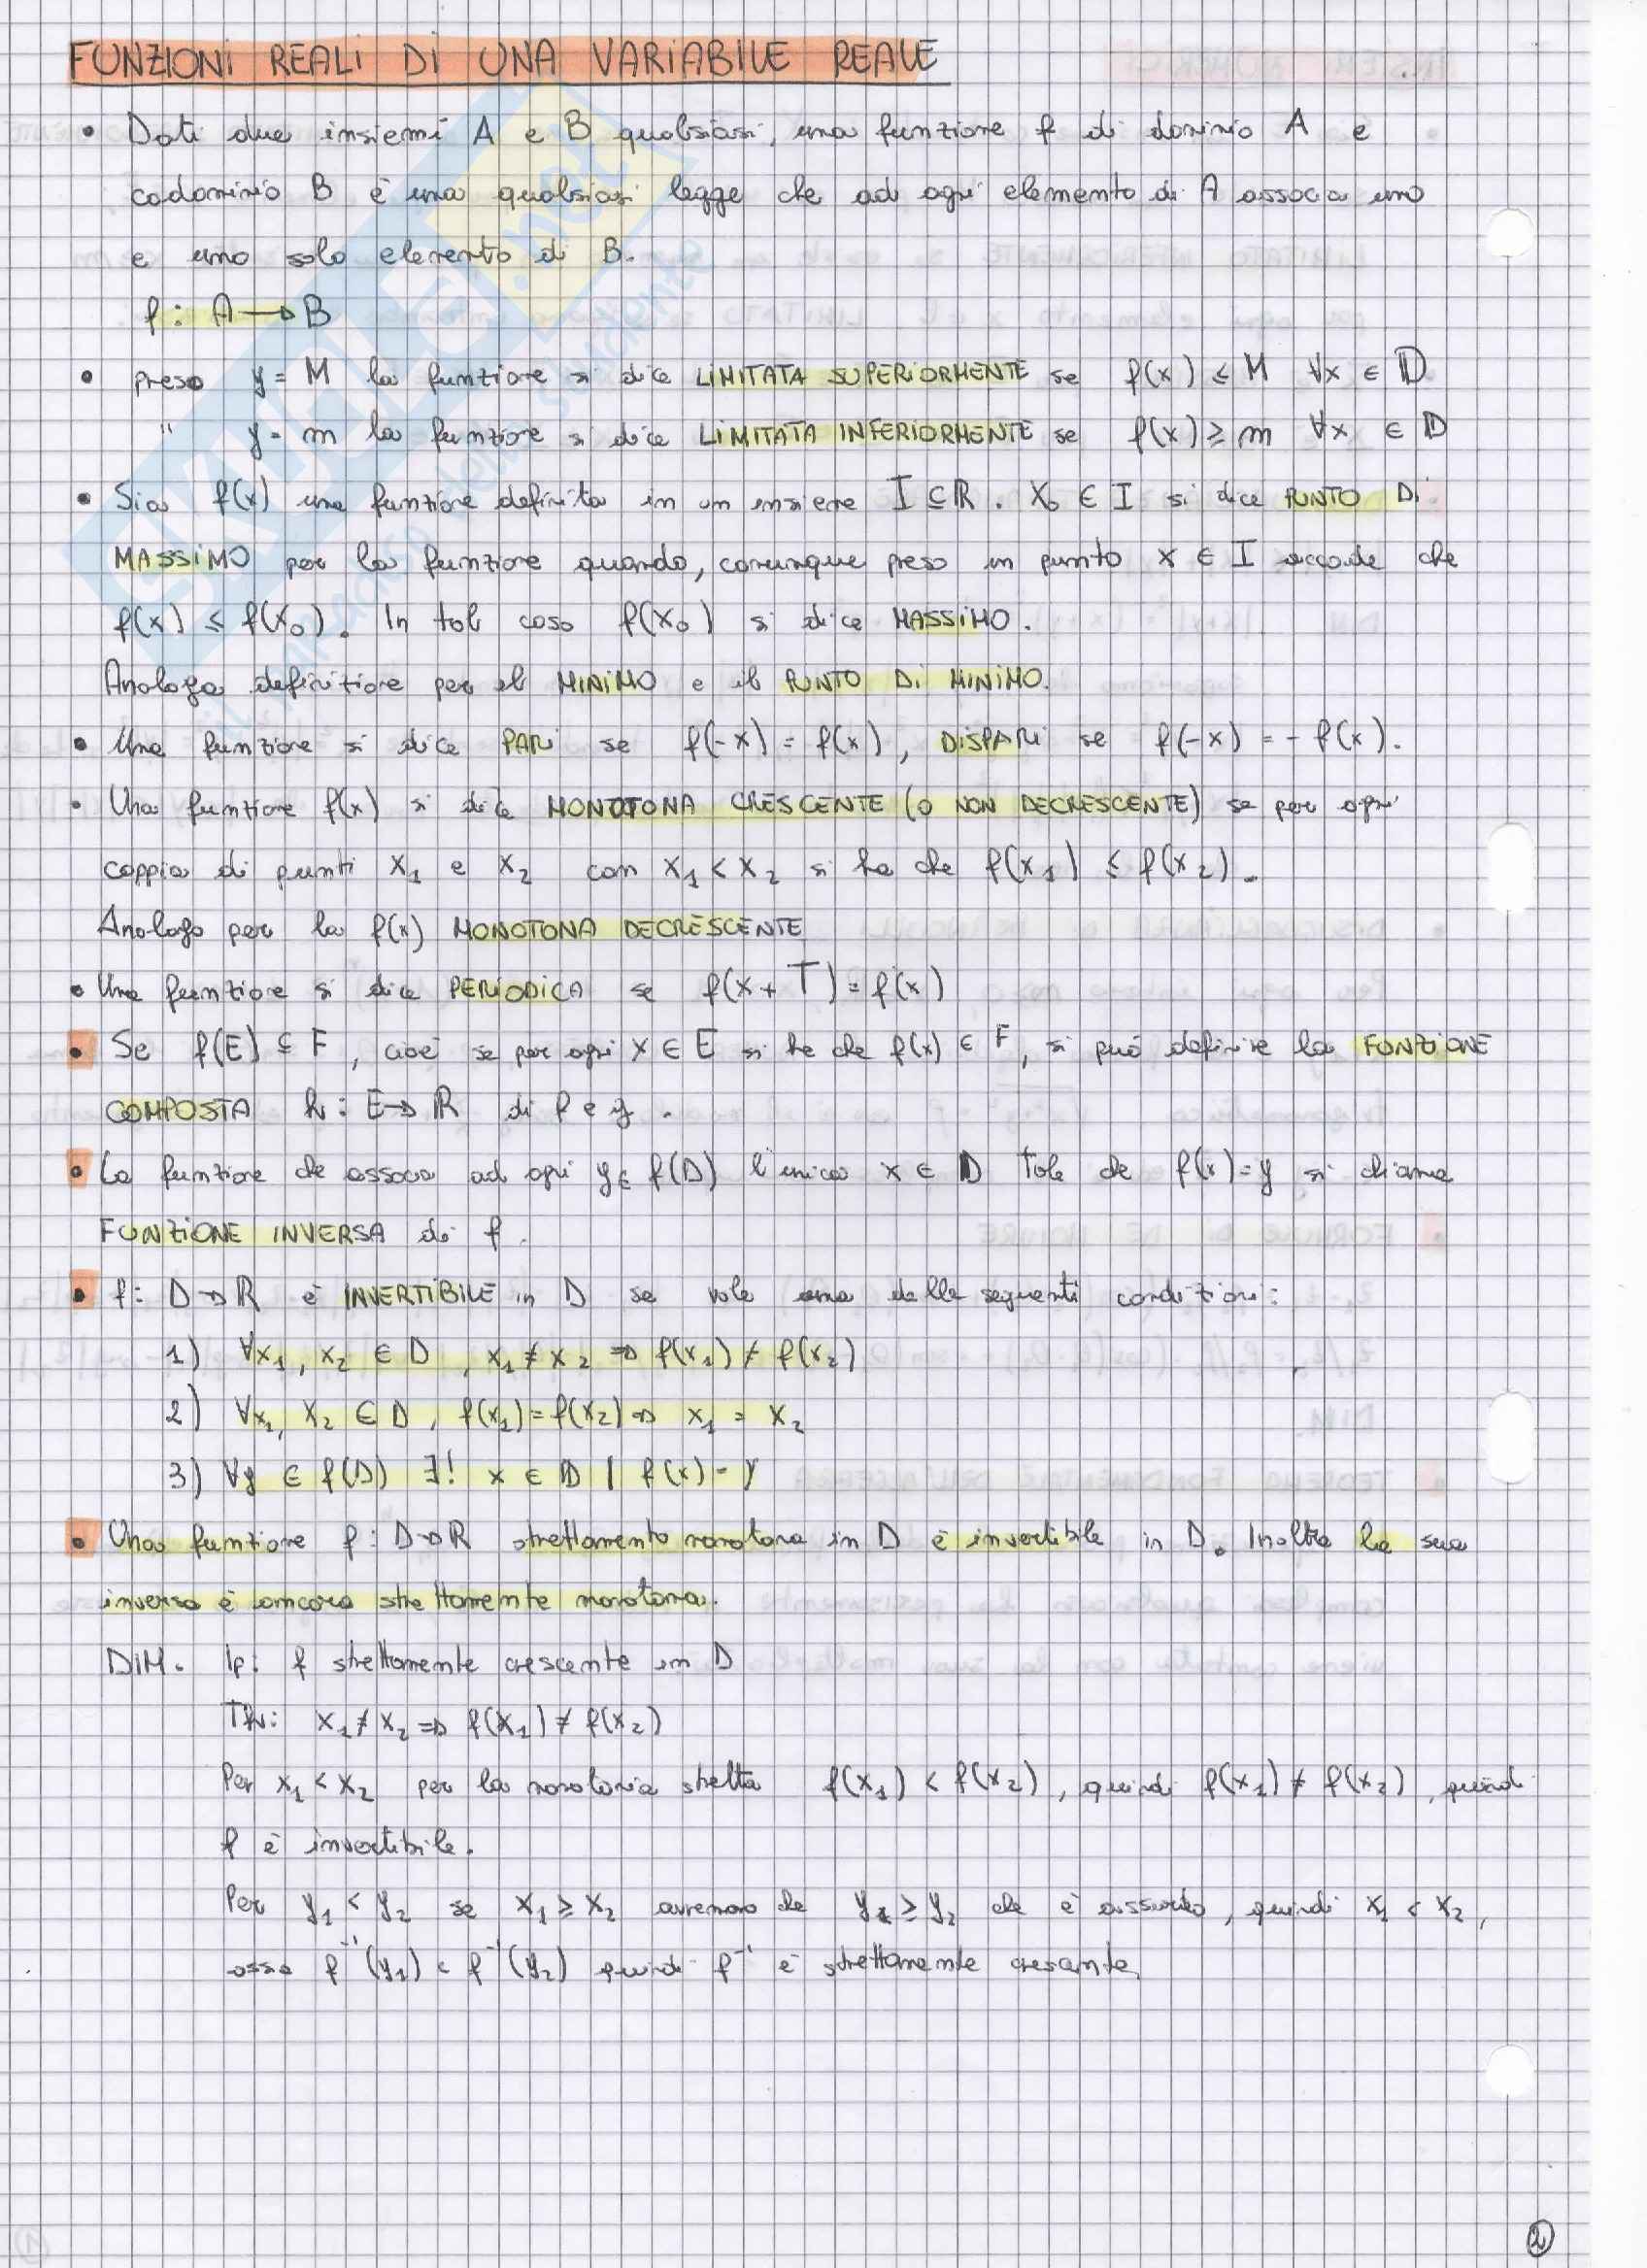 FUNZIONI REALI DI UNA VARIABILE REALE
• Dati due insiemi A e B qualsiasi, una funzione f di dominio A e
codominio B è una qualsiasi legge che ad ogni elemento di A associa uno
e uno solo elemento di B.
f: A → B
• preso y = M la funzione si dice LIMITATA SUPERIORMENTE se f(x) ≤ M ∀x ∈ D
" y = m la funzione si dice LIMITATA INFERIORMENTE se f(x) ≥ m ∀x ∈ D
• Sia f(x) una funzione definita in un insieme I ⊆ ℝ. x₀ ∈ I si dice PUNTO DI
MASSIMO per la funzione quando, comunque preso un punto x ∈ I accade che
f(x) ≤ f(x₀). In tal caso f(x₀) si dice MASSIMO.
Analoga definizione per il MINIMO e il PUNTO DI MINIMO.
• Una funzione si dice PARI se f(-x) = f(x), DISPARI se f(-x) = - f(x).
• Una funzione f(x) si dice MONOTONA CRESCENTE (O NON DECRESCENTE) se per ogni
coppia di punti x₁ e x₂ con x₁ < x₂ si ha che f(x₁) ≤ f(x₂).
Analogo per la f(x) MONOTONA DECRESCENTE
• Una funzione si dice PERIODICA se f(x+T) = f(x)
• Se f(E) ⊆ F, cioè se per ogni x ∈ E si ha che f(x) ∈ F, si può definire la FUNZIONE
COMPOSTA h: E → ℝ di f e g.
• La funzione che associa ad ogni y ∈ f(D) l'unica x ∈ D tale che f(x) = y si chiama
FUNZIONE INVERSA di f.
• f: D → ℝ è INVERTIBILE in D se vale una delle seguenti condizioni:
1) ∀x₁, x₂ ∈ D, x₁ ≠ x₂ ⇒ f(x₁) ≠ f(x₂)
2) ∀x₁, x₂ ∈ D, f(x₁) = f(x₂) ⇒ x₁ = x₂
3) ∀y ∈ f(D) ∃! x ∈ D | f(x) = y
• Una funzione f: D → ℝ strettamente monotona in D è invertibile in D. Inoltre la sua
inversa è ancora strettamente monotona.
DIM. Ip: f strettamente crescente in D
Th: x₁ ≠ x₂ ⇒ f(x₁) ≠ f(x₂)
Per x₁ < x₂ per la monotonia stretta f(x₁) < f(x₂), quindi f(x₁) ≠ f(x₂), quindi
f è invertibile.
Per y₁ < y₂ se x₁ ≥ x₂ avremmo che y₁ ≥ y₂ che è assurdo, quindi x₁ < x₂,
ossia f⁻¹(y₁) < f⁻¹(y₂) quindi f⁻¹ è strettamente crescente
2